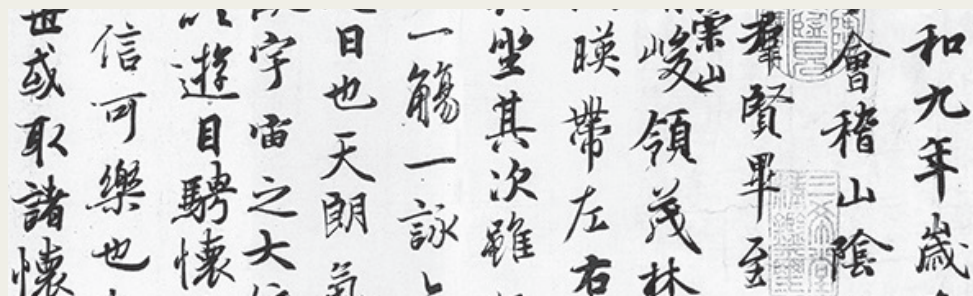 和九年歲
會稽山陰
羣賢畢至
崇山峻領茂林
暎帶左右
坐其次雖
一觴一詠
日也天朗氣
宇宙之大
遊目騁懷
信可樂也
世或取諸懷